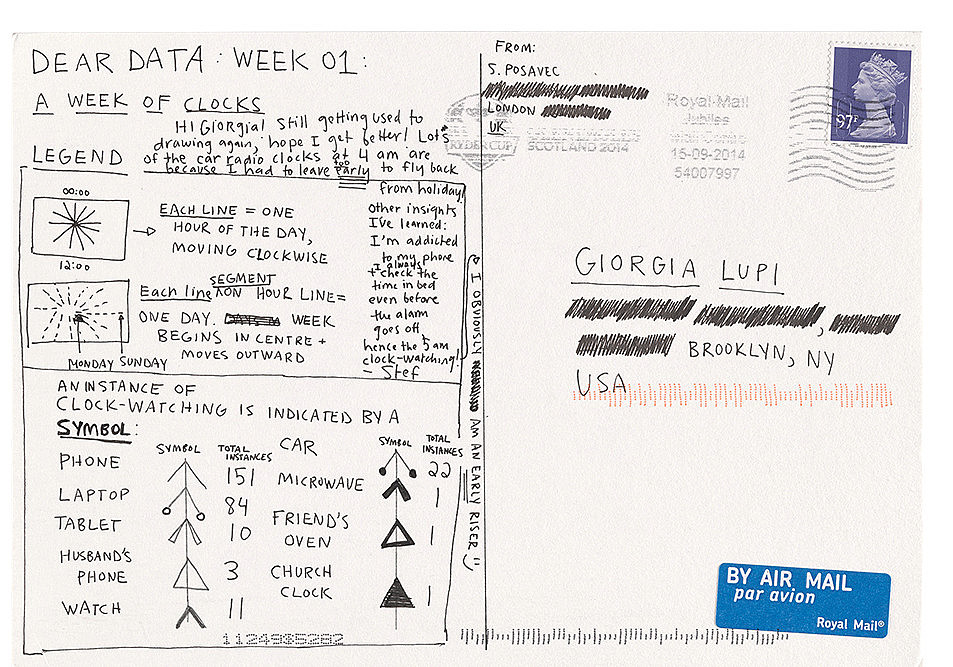 DEAR DATA: WEEK 01:
A WEEK OF CLOCKS
HI GIORGIA! Still getting used to
drawing again, hope I get better! Lots
of the car radio clocks at 4 am are
because I had to leave too early to fly back
from holiday!
Other insights
I've learned:
I'm addicted
to my phone
+ I always check the
time in bed
even before
the alarm
goes off,
hence the 5 am
clock-watching!
- Stef
LEGEND
00:00
12:00
EACH LINE = ONE
HOUR OF THE DAY,
MOVING CLOCKWISE
Each line SEGMENT ON HOUR LINE =
ONE DAY. WEEK
BEGINS IN CENTRE +
MOVES OUTWARD
MONDAY SUNDAY
AN INSTANCE OF
CLOCK-WATCHING IS INDICATED BY A
SYMBOL:
SYMBOL TOTAL INSTANCES
PHONE 151
LAPTOP 84
TABLET 10
HUSBAND'S
PHONE 3
WATCH 11
SYMBOL TOTAL INSTANCES
CAR 22
MICROWAVE 1
FRIEND'S
OVEN 1
CHURCH
CLOCK 1
1124985282
I OBVIOUSLY AM AN EARLY RISER!!
FROM:
S. POSAVEC
LONDON
UK
RYDER CUP
SCOTLAND 2014
Royal Mail
Jubilee
Mail Centre
15-09-2014
54007997
97P
GIORGIA LUPI
BROOKLYN, NY
USA
BY AIR MAIL
par avion
Royal Mail®